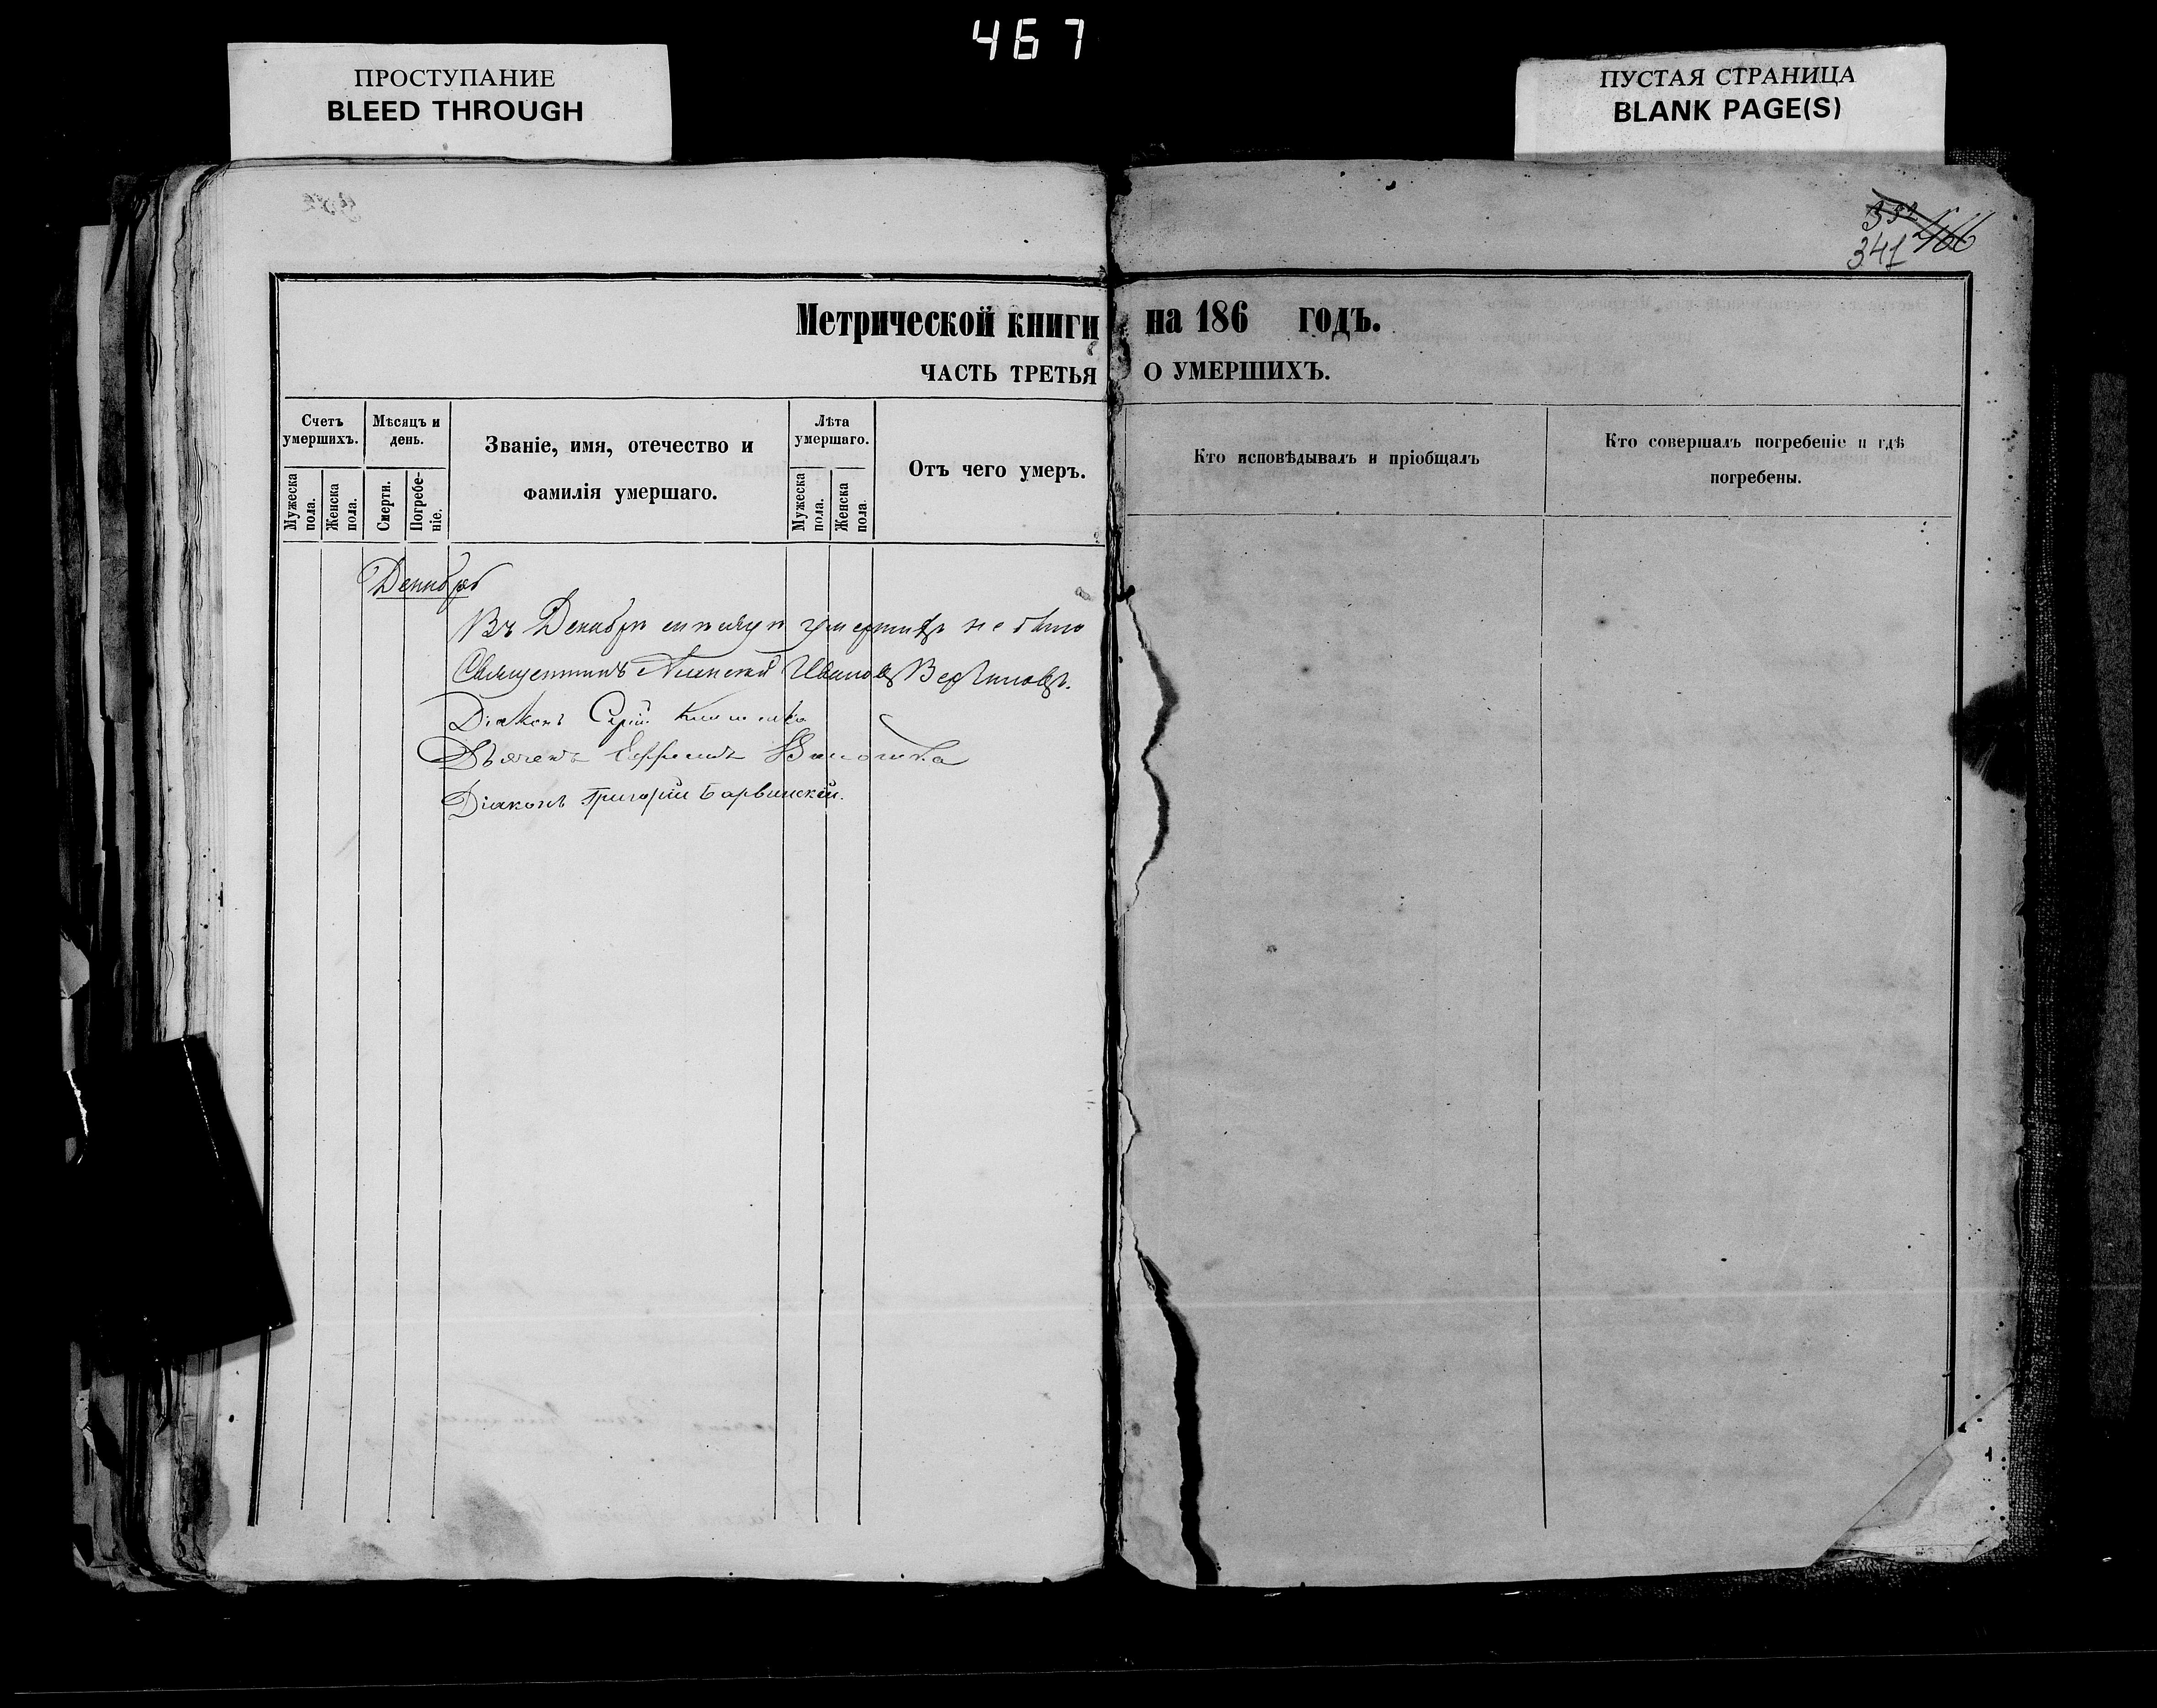 467
ПРОСТУПАНИЕ
BLEED THROUGH
ПУСТАЯ СТРАНИЦА
BLANK PAGE(S)
352 466
341
Метрической книги на 186 годъ.
ЧАСТЬ ТРЕТЬЯ О УМЕРШИХЪ.
Счетъ умершихъ.
Мужеска пола.
Женска пола.
Мѣсяцъ и день.
Смерти.
Погребе-ніе.
Званіе, имя, отечество и
фамилія умершаго.
Лѣта умершаго.
Мужеска пола.
Женска пола.
Отъ чего умеръ.
Кто исповѣдывалъ и пріобщалъ
Кто совершалъ погребеніе и гдѣ
погребены.
Декабрь
Въ Декабрѣ мѣсяцѣ умершихъ не было
Священникъ Иванов
Діаконъ
Дьячекъ Ефремъ
Діаконъ Григорій Барвинскій.